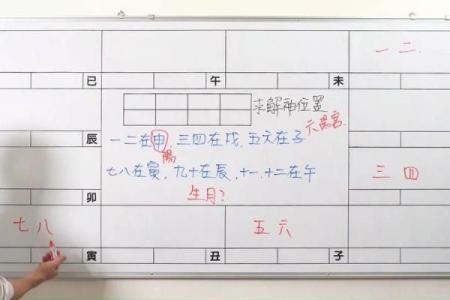 一 二
巳 午 未
求解神位置
六陽宮
辰
一二在申, 三四在戌, 五六在子
陽
七八在寅, 九十在辰, 十一, 十二在午
三 四
卯
生月?
七 八
五 六
寅 丑 子